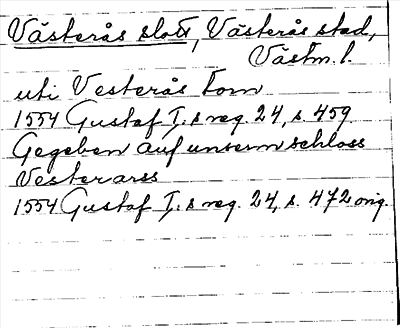 Västerås slott, Västerås stad,
Västm. l.
uti Vesterås Torn
1554 Gustaf I:s reg. 24, s. 459.
Gegeben auf unserm schloss
Vesterarss
1554 Gustaf I:s reg. 24, s. 472 orig.